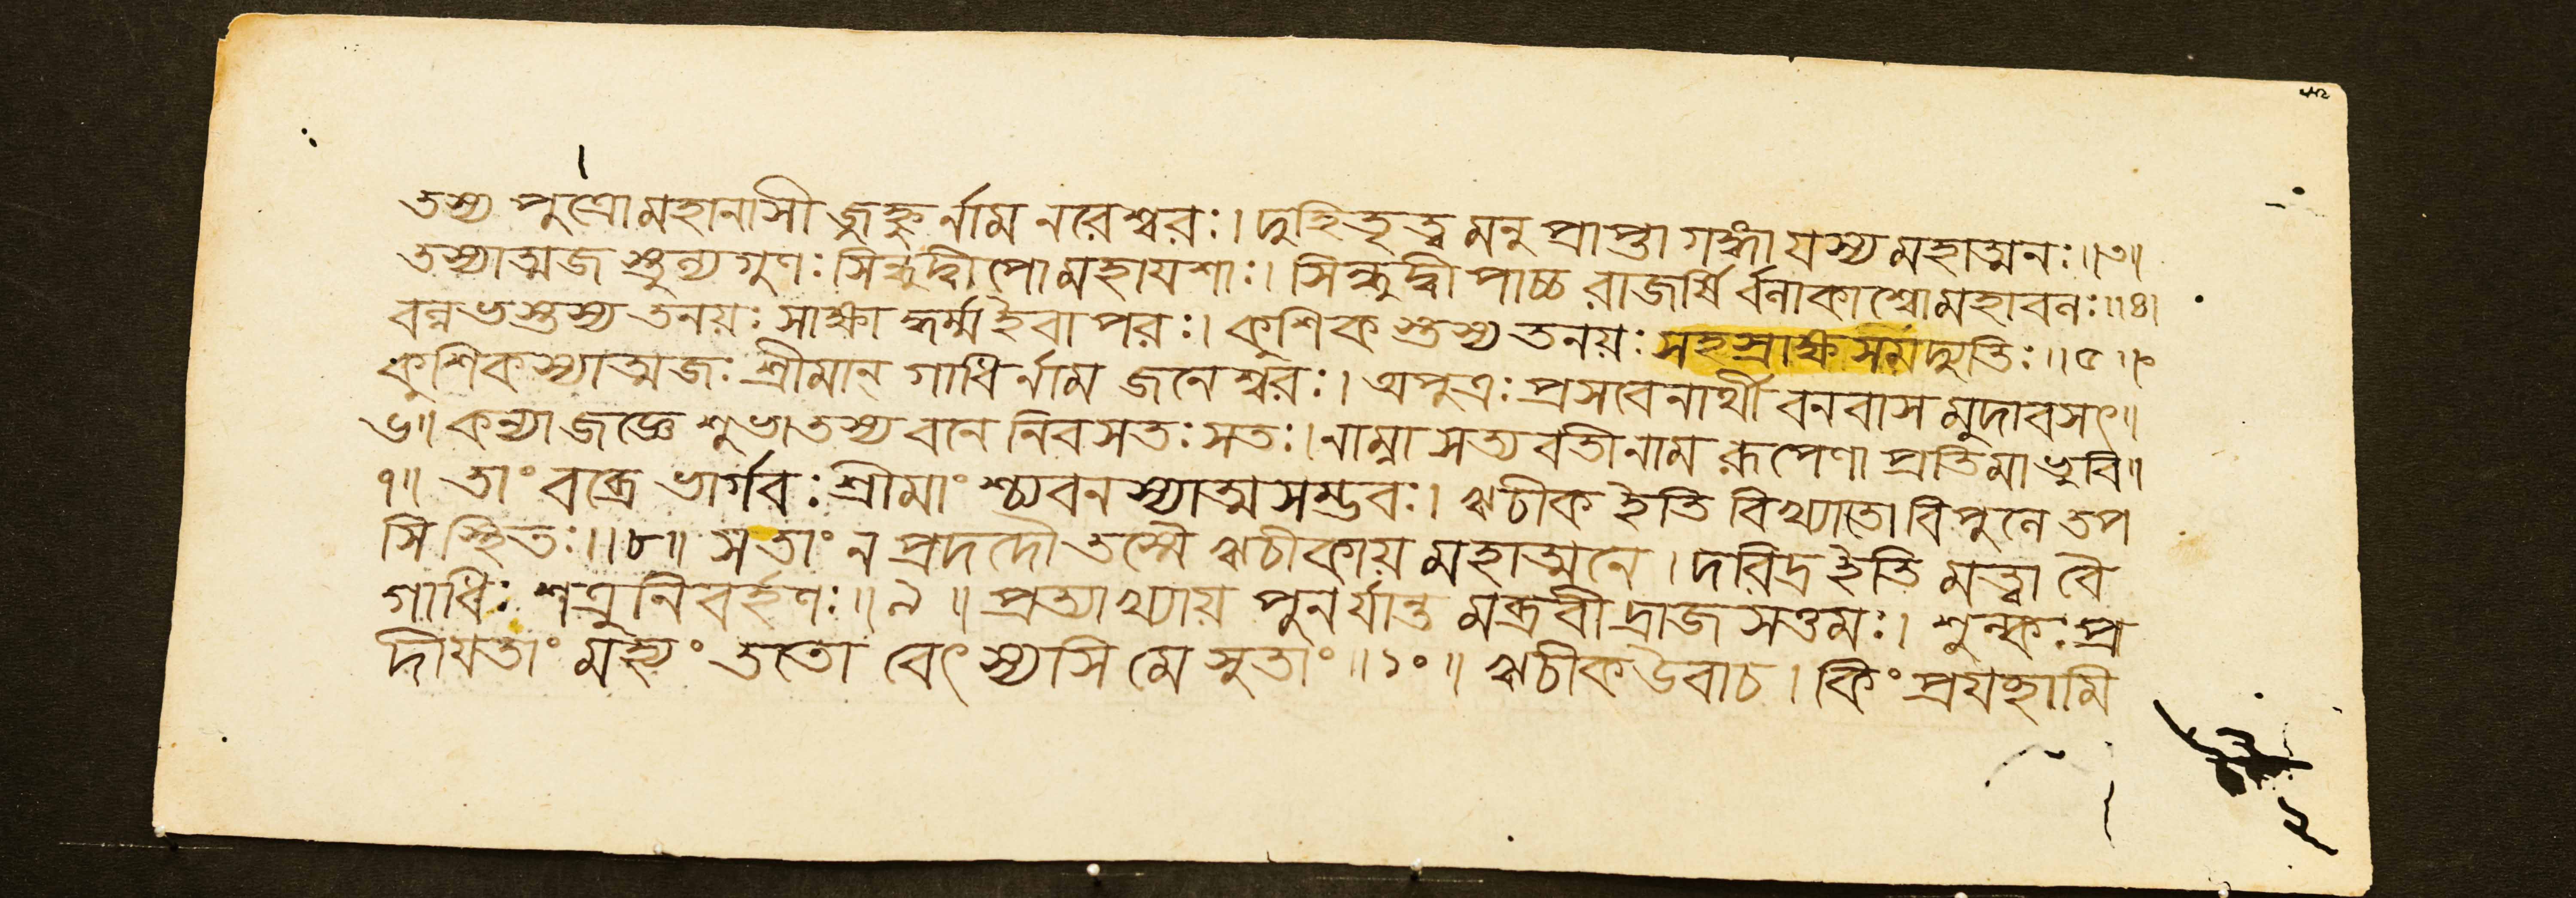 তস্য পুত্রোমহানাসীজ্জহ্নুর্নাম নরেশ্বরঃ। দুহিতৃত্বমনুপ্রাপ্তা গঙ্গা যস্য মহাত্মনঃ॥৩॥
তস্যাত্মজস্তুল্যগুণঃ সিন্ধুদ্বীপোমহাযশাঃ। সিন্ধুদ্বীপাচ্চ রাজর্ষি র্বলাকাশ্বোমহাবলঃ॥৪।
বল্লভস্তস্য তনয়ঃ সাক্ষাদ্ধর্ম্মইবাপরঃ। কুশিকস্তস্য তনয়ঃ সহস্রাক্ষসমদ্যুতিঃ॥৫॥
কুশিকস্যাত্মজঃ শ্রীমান্ গাধির্নাম জনেশ্বরঃ। অপুত্রঃ প্রসবেনার্থী বনবাসমুদাবসৎ॥
৬॥ কন্যা জজ্ঞে শুভা তস্য বনে নিবসতঃ সতঃ। নাম্না সত্যবতীনাম রূপেণাপ্রতিমাভুবি॥
৭॥ তাং বব্রে ভার্গবঃ শ্রীমাংশ্চ্যবনস্যাত্মসম্ভবঃ। ঋচীক ইতি বিখ্যাতো বিপুলে তপ
সি স্থিতঃ॥৮॥ স তাং ন প্রদদৌ তস্মৈ ঋচীকায় মহাত্মনে। দরিদ্র ইতি মত্বা বৈ
গাধিঃ শত্রুনিবর্হণঃ॥৯॥ প্রত্যাখ্যায় পুনর্যান্তমব্রবীদ্রাজসত্তমঃ। শুল্কঃ প্র
দীয়তাং মহ্যং ততো বেৎস্যসি মে সুতাং॥১০॥ ঋচীকউবাচ। কিং প্রযচ্ছামি
২